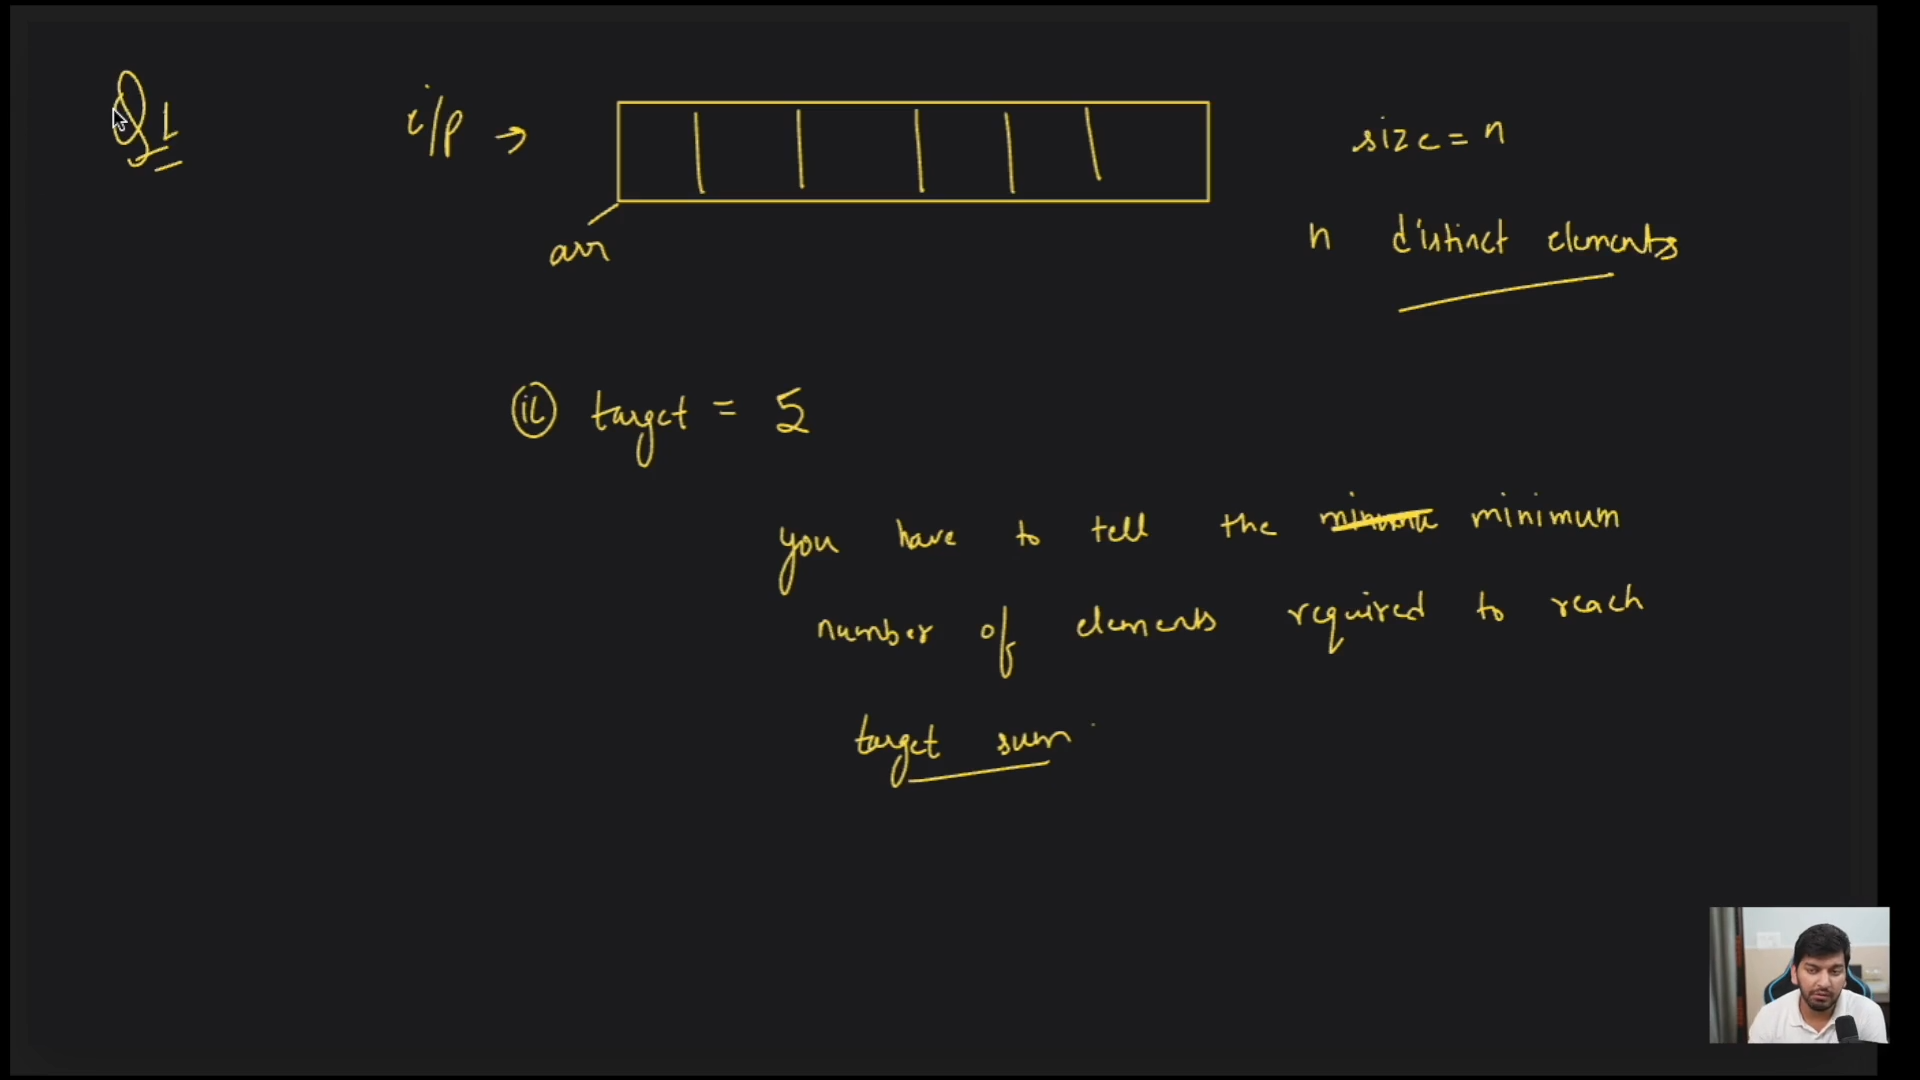 Q1
i/p →
size = n
arr
n distinct elements
(ii) target = 5
you have to tell the minimu minimum
number of elements required to reach
target sum